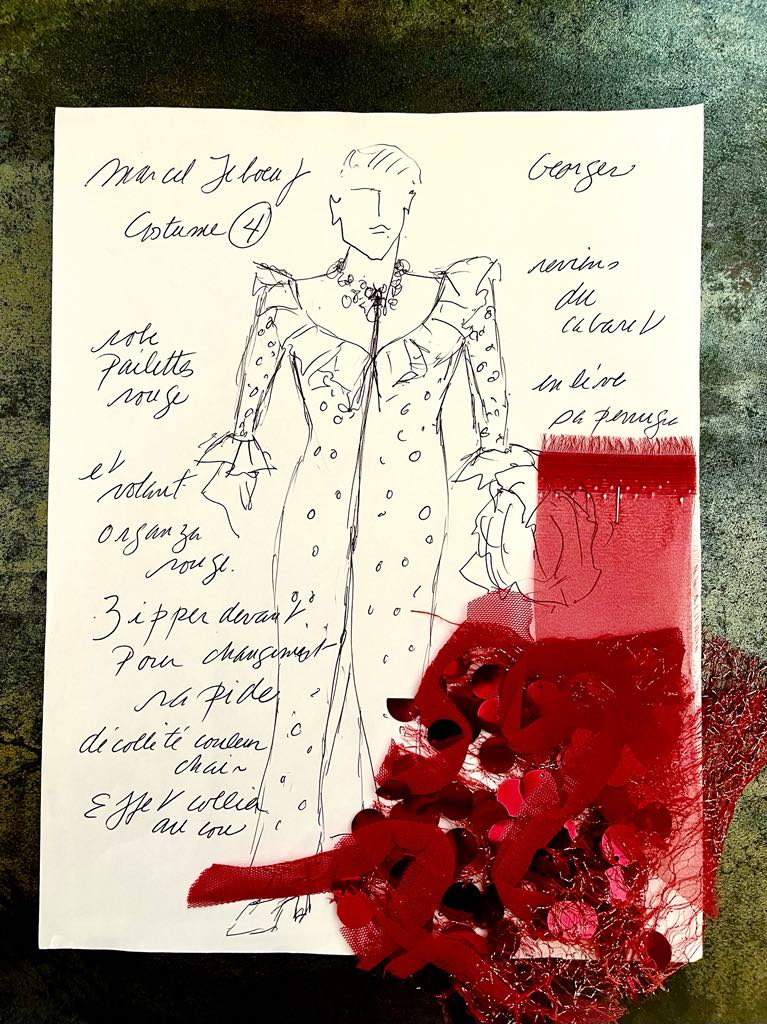 Marcel Leboeuf
Costume 4
Georges
reviens
du
cabaret
enlève
sa perruque
robe
paillettes
rouge
et
volant
organza
rouge.
Zipper devant
Pour changement
rapide
décolleté couleur
chair
Effet collier
au cou